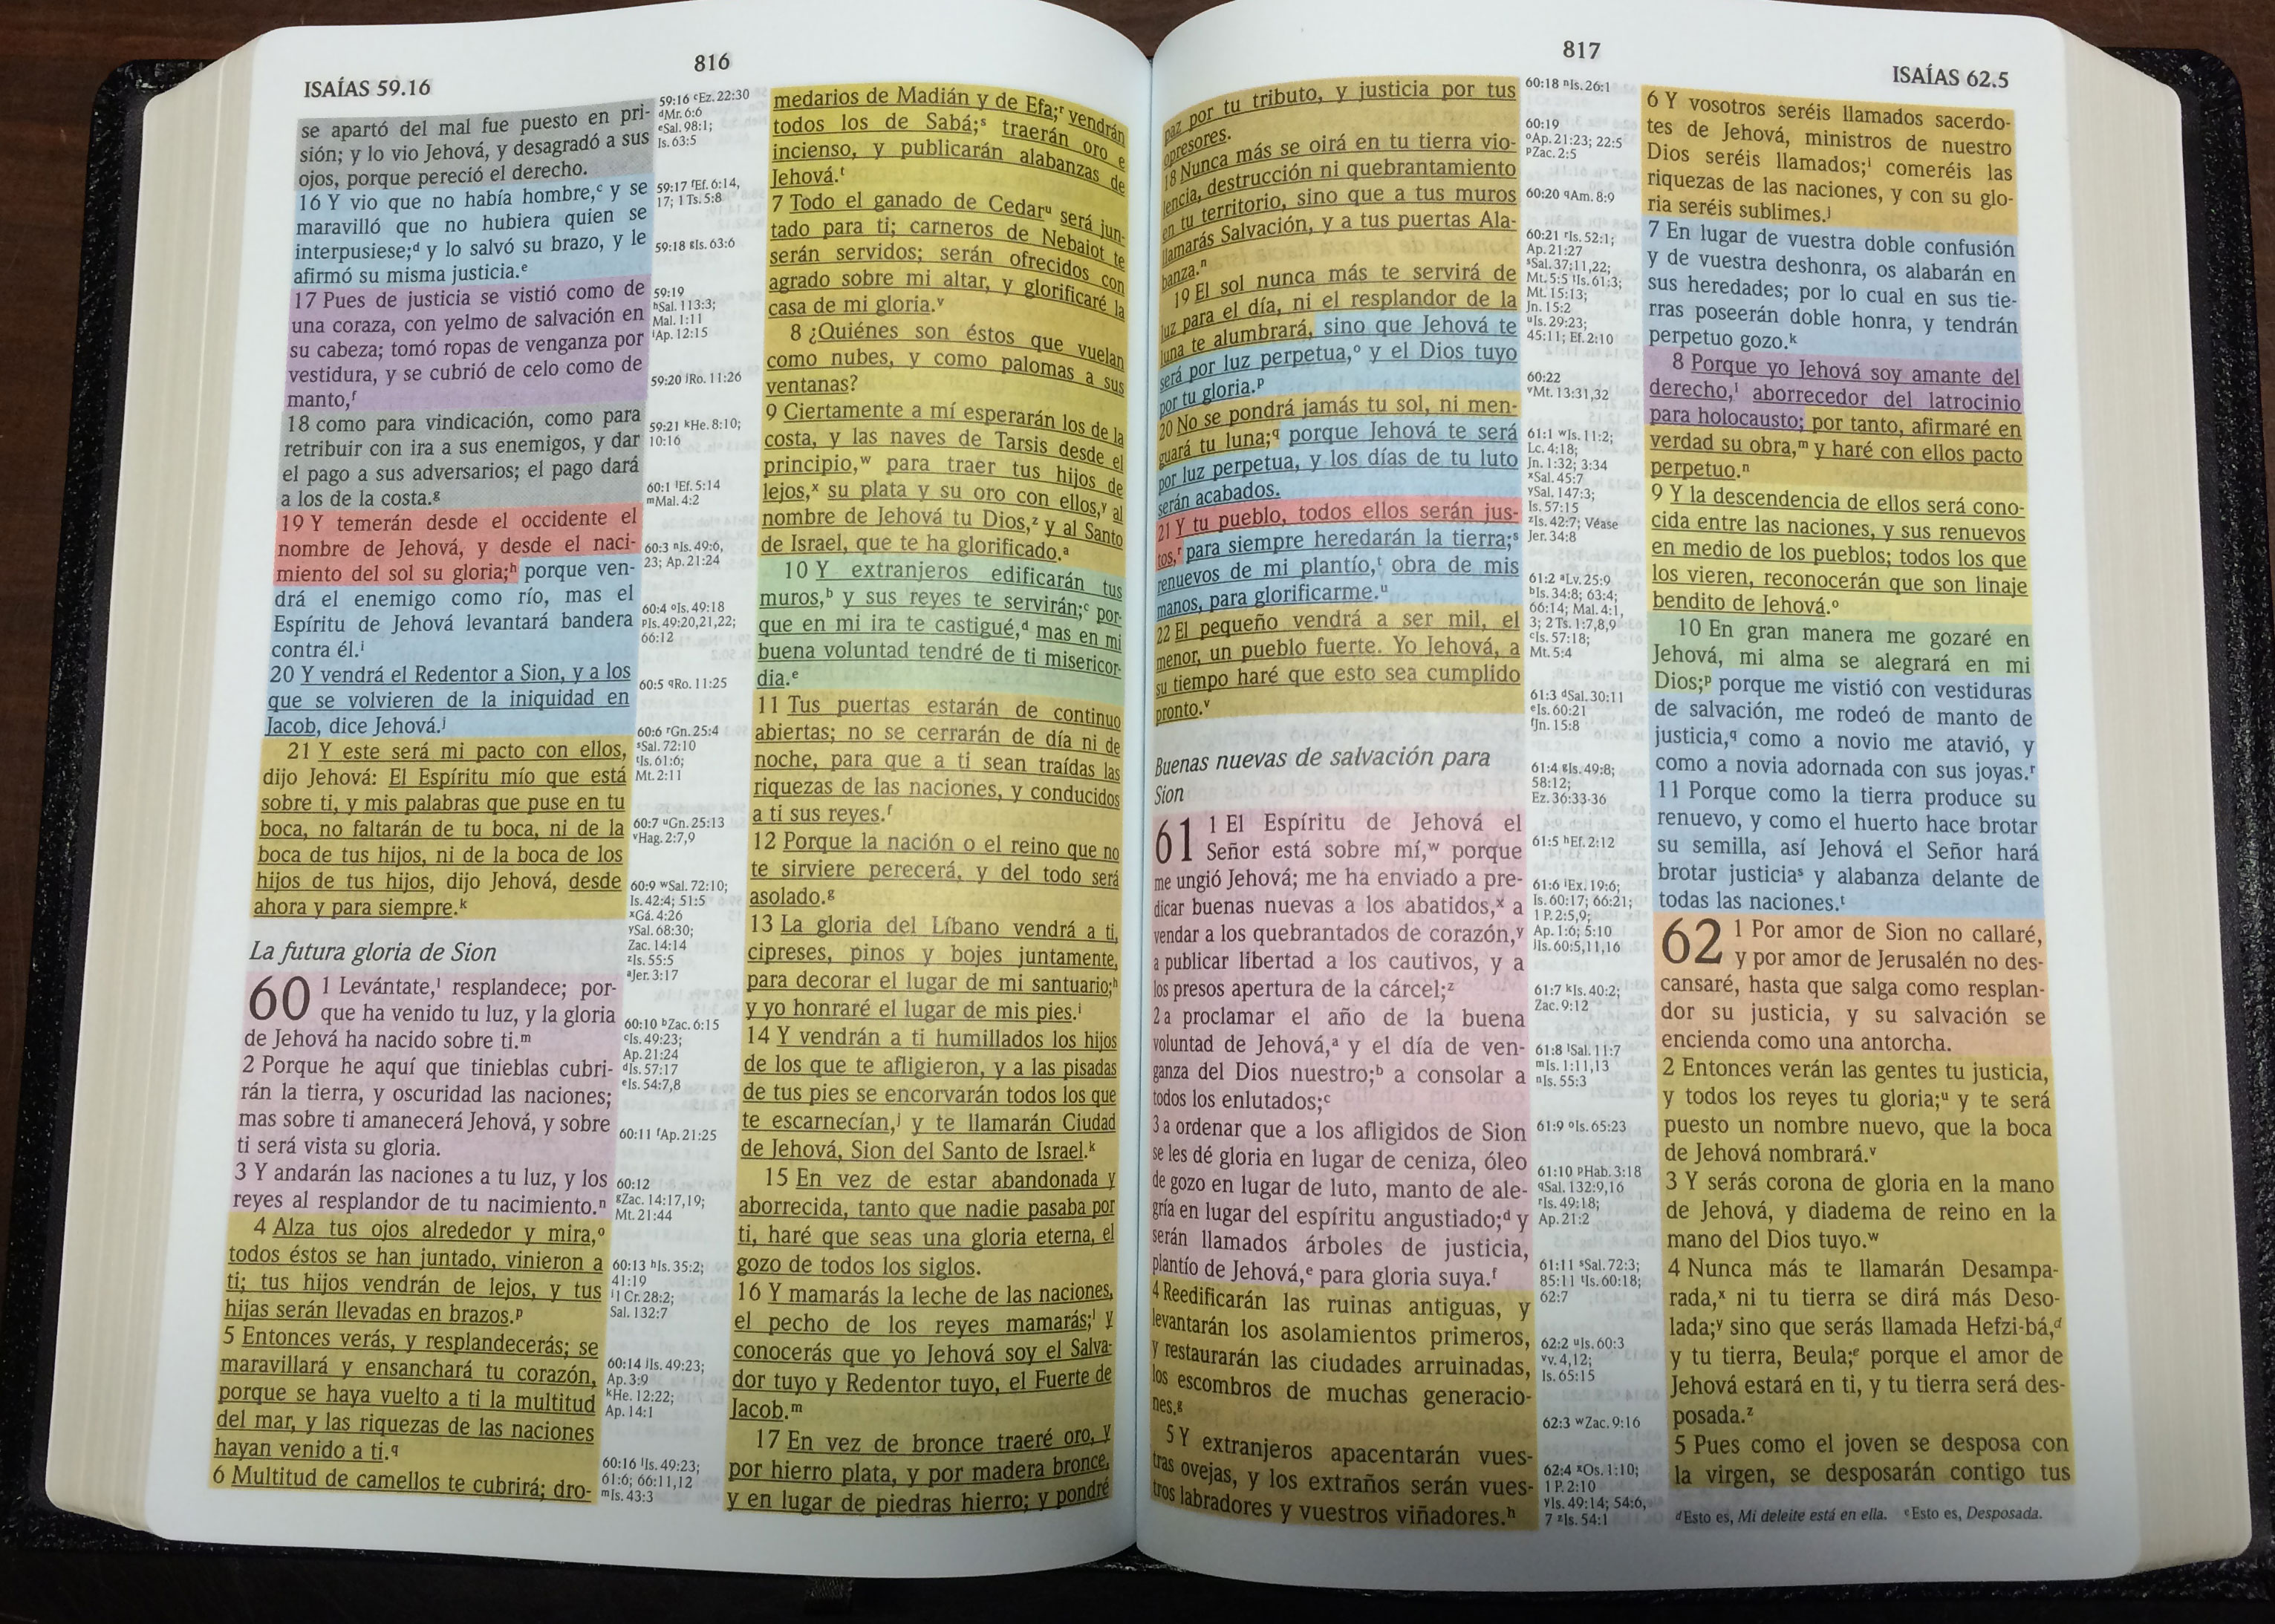 816
ISAÍAS 59.16
se apartó del mal fue puesto en pri-
sión; y lo vio Jehová, y desagradó a sus
ojos, porque pereció el derecho.
16 Y vio que no había hombre,ᶜ y se
maravilló que no hubiera quien se
interpusiese;ᵈ y lo salvó su brazo, y le
afirmó su misma justicia.ᵉ
17 Pues de justicia se vistió como de
una coraza, con yelmo de salvación en
su cabeza; tomó ropas de venganza por
vestidura, y se cubrió de celo como de
manto,ᶠ
18 como para vindicación, como para
retribuir con ira a sus enemigos, y dar
el pago a sus adversarios; el pago dará
a los de la costa.ᵍ
19 Y temerán desde el occidente el
nombre de Jehová, y desde el naci-
miento del sol su gloria;ʰ porque ven-
drá el enemigo como río, mas el
Espíritu de Jehová levantará bandera
contra él.ⁱ
20 Y vendrá el Redentor a Sion, y a los
que se volvieren de la iniquidad en
Jacob, dice Jehová.ʲ
21 Y este será mi pacto con ellos,
dijo Jehová: El Espíritu mío que está
sobre ti, y mis palabras que puse en tu
boca, no faltarán de tu boca, ni de la
boca de tus hijos, ni de la boca de los
hijos de tus hijos, dijo Jehová, desde
ahora y para siempre.ᵏ
La futura gloria de Sion
60 1 Levántate,ˡ resplandece; por-
que ha venido tu luz, y la gloria
de Jehová ha nacido sobre ti.ᵐ
2 Porque he aquí que tinieblas cubri-
rán la tierra, y oscuridad las naciones;
mas sobre ti amanecerá Jehová, y sobre
ti será vista su gloria.
3 Y andarán las naciones a tu luz, y los
reyes al resplandor de tu nacimiento.ⁿ
4 Alza tus ojos alrededor y mira,ᵒ
todos éstos se han juntado, vinieron a
ti; tus hijos vendrán de lejos, y tus
hijas serán llevadas en brazos.ᵖ
5 Entonces verás, y resplandecerás; se
maravillará y ensanchará tu corazón,
porque se haya vuelto a ti la multitud
del mar, y las riquezas de las naciones
hayan venido a ti.q
6 Multitud de camellos te cubrirá; dro-
59:16 ᶜEz. 22:30
ᵈMr. 6:6
ᵉSal. 98:1;
Is. 63:5
59:17 ᶠEf. 6:14,
17; 1 Ts. 5:8
59:18 ᵍIs. 63:6
59:19
ʰSal. 113:3;
Mal. 1:11
ⁱAp. 12:15
59:20 ʲRo. 11:26
59:21 ᵏHe. 8:10;
10:16
60:1 ˡEf. 5:14
ᵐMal. 4:2
60:3 ⁿIs. 49:6,
23; Ap. 21:24
60:4 ᵒIs. 49:18
ᵖIs. 49:20,21,22;
66:12
60:5 qRo. 11:25
60:6 ʳGn. 25:4
ˢSal. 72:10
ᵗIs. 61:6;
Mt. 2:11
60:7 ᵘGn. 25:13
ᵛHag. 2:7,9
60:9 ʷSal. 72:10;
Is. 42:4; 51:5
ˣGá. 4:26
ʸSal. 68:30;
Zac. 14:14
ᶻIs. 55:5
ᵃJer. 3:17
60:10 ᵇZac. 6:15
ᶜIs. 49:23;
Ap. 21:24
ᵈIs. 57:17
ᵉIs. 54:7,8
60:11 ᶠAp. 21:25
60:12
ᵍZac. 14:17,19;
Mt. 21:44
60:13 ʰIs. 35:2;
41:19
ⁱ1 Cr. 28:2;
Sal. 132:7
60:14 ʲIs. 49:23;
Ap. 3:9
ᵏHe. 12:22;
Ap. 14:1
60:16 ˡIs. 49:23;
61:6; 66:11,12
ᵐIs. 43:3
medarios de Madián y de Efa;ʳ vendrán
todos los de Sabá;ˢ traerán oro e
incienso, y publicarán alabanzas de
Jehová.ᵗ
7 Todo el ganado de Cedarᵘ será jun-
tado para ti; carneros de Nebaiot te
serán servidos; serán ofrecidos con
agrado sobre mi altar, y glorificaré la
casa de mi gloria.ᵛ
8 ¿Quiénes son éstos que vuelan
como nubes, y como palomas a sus
ventanas?
9 Ciertamente a mí esperarán los de la
costa, y las naves de Tarsis desde el
principio,ʷ para traer tus hijos de
lejos,ˣ su plata y su oro con ellos,ʸ al
nombre de Jehová tu Dios,ᶻ y al Santo
de Israel, que te ha glorificado.ᵃ
10 Y extranjeros edificarán tus
muros,ᵇ y sus reyes te servirán;ᶜ por-
que en mi ira te castigué,ᵈ mas en mi
buena voluntad tendré de ti misericor-
dia.ᵉ
11 Tus puertas estarán de continuo
abiertas; no se cerrarán de día ni de
noche, para que a ti sean traídas las
riquezas de las naciones, y conducidos
a ti sus reyes.ᶠ
12 Porque la nación o el reino que no
te sirviere perecerá, y del todo será
asolado.ᵍ
13 La gloria del Líbano vendrá a ti,
cipreses, pinos y bojes juntamente,
para decorar el lugar de mi santuario;ʰ
y yo honraré el lugar de mis pies.ⁱ
14 Y vendrán a ti humillados los hijos
de los que te afligieron, y a las pisadas
de tus pies se encorvarán todos los que
te escarnecían,ʲ y te llamarán Ciudad
de Jehová, Sion del Santo de Israel.ᵏ
15 En vez de estar abandonada y
aborrecida, tanto que nadie pasaba por
ti, haré que seas una gloria eterna, el
gozo de todos los siglos.
16 Y mamarás la leche de las naciones,
el pecho de los reyes mamarás;ˡ y
conocerás que yo Jehová soy el Salva-
dor tuyo y Redentor tuyo, el Fuerte de
Jacob.ᵐ
17 En vez de bronce traeré oro, y
por hierro plata, y por madera bronce,
y en lugar de piedras hierro; y pondré
817
ISAÍAS 62.5
paz por tu tributo, y justicia por tus
opresores.
18 Nunca más se oirá en tu tierra vio-
lencia, destrucción ni quebrantamiento
en tu territorio, sino que a tus muros
llamarás Salvación, y a tus puertas Ala-
banza.ⁿ
19 El sol nunca más te servirá de
luz para el día, ni el resplandor de la
luna te alumbrará, sino que Jehová te
será por luz perpetua,ᵒ y el Dios tuyo
por tu gloria.ᵖ
20 No se pondrá jamás tu sol, ni men-
guará tu luna;q porque Jehová te será
por luz perpetua, y los días de tu luto
serán acabados.
21 Y tu pueblo, todos ellos serán jus-
tos,ʳ para siempre heredarán la tierra;ˢ
renuevos de mi plantío,ᵗ obra de mis
manos, para glorificarme.ᵘ
22 El pequeño vendrá a ser mil, el
menor, un pueblo fuerte. Yo Jehová, a
su tiempo haré que esto sea cumplido
pronto.ᵛ
Buenas nuevas de salvación para
Sion
61 1 El Espíritu de Jehová el
Señor está sobre mí,ʷ porque
me ungió Jehová; me ha enviado a pre-
dicar buenas nuevas a los abatidos,ˣ a
vendar a los quebrantados de corazón,ʸ
a publicar libertad a los cautivos, y a
los presos apertura de la cárcel;ᶻ
2 a proclamar el año de la buena
voluntad de Jehová,ᵃ y el día de ven-
ganza del Dios nuestro;ᵇ a consolar a
todos los enlutados;ᶜ
3 a ordenar que a los afligidos de Sion
se les dé gloria en lugar de ceniza, óleo
de gozo en lugar de luto, manto de ale-
gría en lugar del espíritu angustiado;ᵈ y
serán llamados árboles de justicia,
plantío de Jehová,ᵉ para gloria suya.ᶠ
4 Reedificarán las ruinas antiguas, y
levantarán los asolamientos primeros,
y restaurarán las ciudades arruinadas,
los escombros de muchas generacio-
nes.ᵍ
5 Y extranjeros apacentarán vues-
tras ovejas, y los extraños serán vues-
tros labradores y vuestros viñadores.ʰ
60:18 ⁿIs. 26:1
60:19
ᵒAp. 21:23; 22:5
ᵖZac. 2:5
60:20 qAm. 8:9
60:21 ʳIs. 52:1;
Ap. 21:27
ˢSal. 37:11,22;
Mt. 5:5 ᵗIs. 61:3;
Mt. 15:13;
Jn. 15:2
ᵘIs. 29:23;
45:11; Ef. 2:10
60:22
ᵛMt. 13:31,32
61:1 ʷIs. 11:2;
Lc. 4:18;
Jn. 1:32; 3:34
ˣSal. 45:7
ʸSal. 147:3;
Is. 57:15
ᶻIs. 42:7; Véase
Jer. 34:8
61:2 ᵃLv. 25:9
ᵇIs. 34:8; 63:4;
66:14; Mal. 4:1,
3; 2 Ts. 1:7,8,9
ᶜIs. 57:18;
Mt. 5:4
61:3 ᵈSal. 30:11
ᵉIs. 60:21
ᶠJn. 15:8
61:4 ᵍIs. 49:8;
58:12;
Ez. 36:33-36
61:5 ʰEf. 2:12
61:6 ⁱEx. 19:6;
Is. 60:17; 66:21;
1 P. 2:5,9;
Ap. 1:6; 5:10
ʲIs. 60:5,11,16
61:7 ᵏIs. 40:2;
Zac. 9:12
61:8 ˡSal. 11:7
ᵐIs. 1:11,13
ⁿIs. 55:3
61:9 ᵒIs. 65:23
61:10 ᵖHab. 3:18
qSal. 132:9,16
ʳIs. 49:18;
Ap. 21:2
61:11 ˢSal. 72:3;
85:11 ᵗIs. 60:18;
62:7
62:2 ᵘIs. 60:3
ᵛv. 4,12;
Is. 65:15
62:3 ʷZac. 9:16
62:4 ˣOs. 1:10;
1 P. 2:10
ʸIs. 49:14; 54:6,
7 ᶻIs. 54:1
6 Y vosotros seréis llamados sacerdo-
tes de Jehová, ministros de nuestro
Dios seréis llamados;ⁱ comeréis las
riquezas de las naciones, y con su glo-
ria seréis sublimes.ʲ
7 En lugar de vuestra doble confusión
y de vuestra deshonra, os alabarán en
sus heredades; por lo cual en sus tie-
rras poseerán doble honra, y tendrán
perpetuo gozo.ᵏ
8 Porque yo Jehová soy amante del
derecho,ˡ aborrecedor del latrocinio
para holocausto; por tanto, afirmaré en
verdad su obra,ᵐ y haré con ellos pacto
perpetuo.ⁿ
9 Y la descendencia de ellos será cono-
cida entre las naciones, y sus renuevos
en medio de los pueblos; todos los que
los vieren, reconocerán que son linaje
bendito de Jehová.ᵒ
10 En gran manera me gozaré en
Jehová, mi alma se alegrará en mi
Dios;ᵖ porque me vistió con vestiduras
de salvación, me rodeó de manto de
justicia,q como a novio me atavió, y
como a novia adornada con sus joyas.ʳ
11 Porque como la tierra produce su
renuevo, y como el huerto hace brotar
su semilla, así Jehová el Señor hará
brotar justiciaˢ y alabanza delante de
todas las naciones.ᵗ
62 1 Por amor de Sion no callaré,
y por amor de Jerusalén no des-
cansaré, hasta que salga como resplan-
dor su justicia, y su salvación se
encienda como una antorcha.
2 Entonces verán las gentes tu justicia,
y todos los reyes tu gloria;ᵘ y te será
puesto un nombre nuevo, que la boca
de Jehová nombrará.ᵛ
3 Y serás corona de gloria en la mano
de Jehová, y diadema de reino en la
mano del Dios tuyo.ʷ
4 Nunca más te llamarán Desampa-
rada,ˣ ni tu tierra se dirá más Deso-
lada;ʸ sino que serás llamada Hefzi-bá,ᵈ
y tu tierra, Beula;ᵉ porque el amor de
Jehová estará en ti, y tu tierra será des-
posada.ᶻ
5 Pues como el joven se desposa con
la virgen, se desposarán contigo tus
ᵈEsto es, Mi deleite está en ella. ᵉEsto es, Desposada.